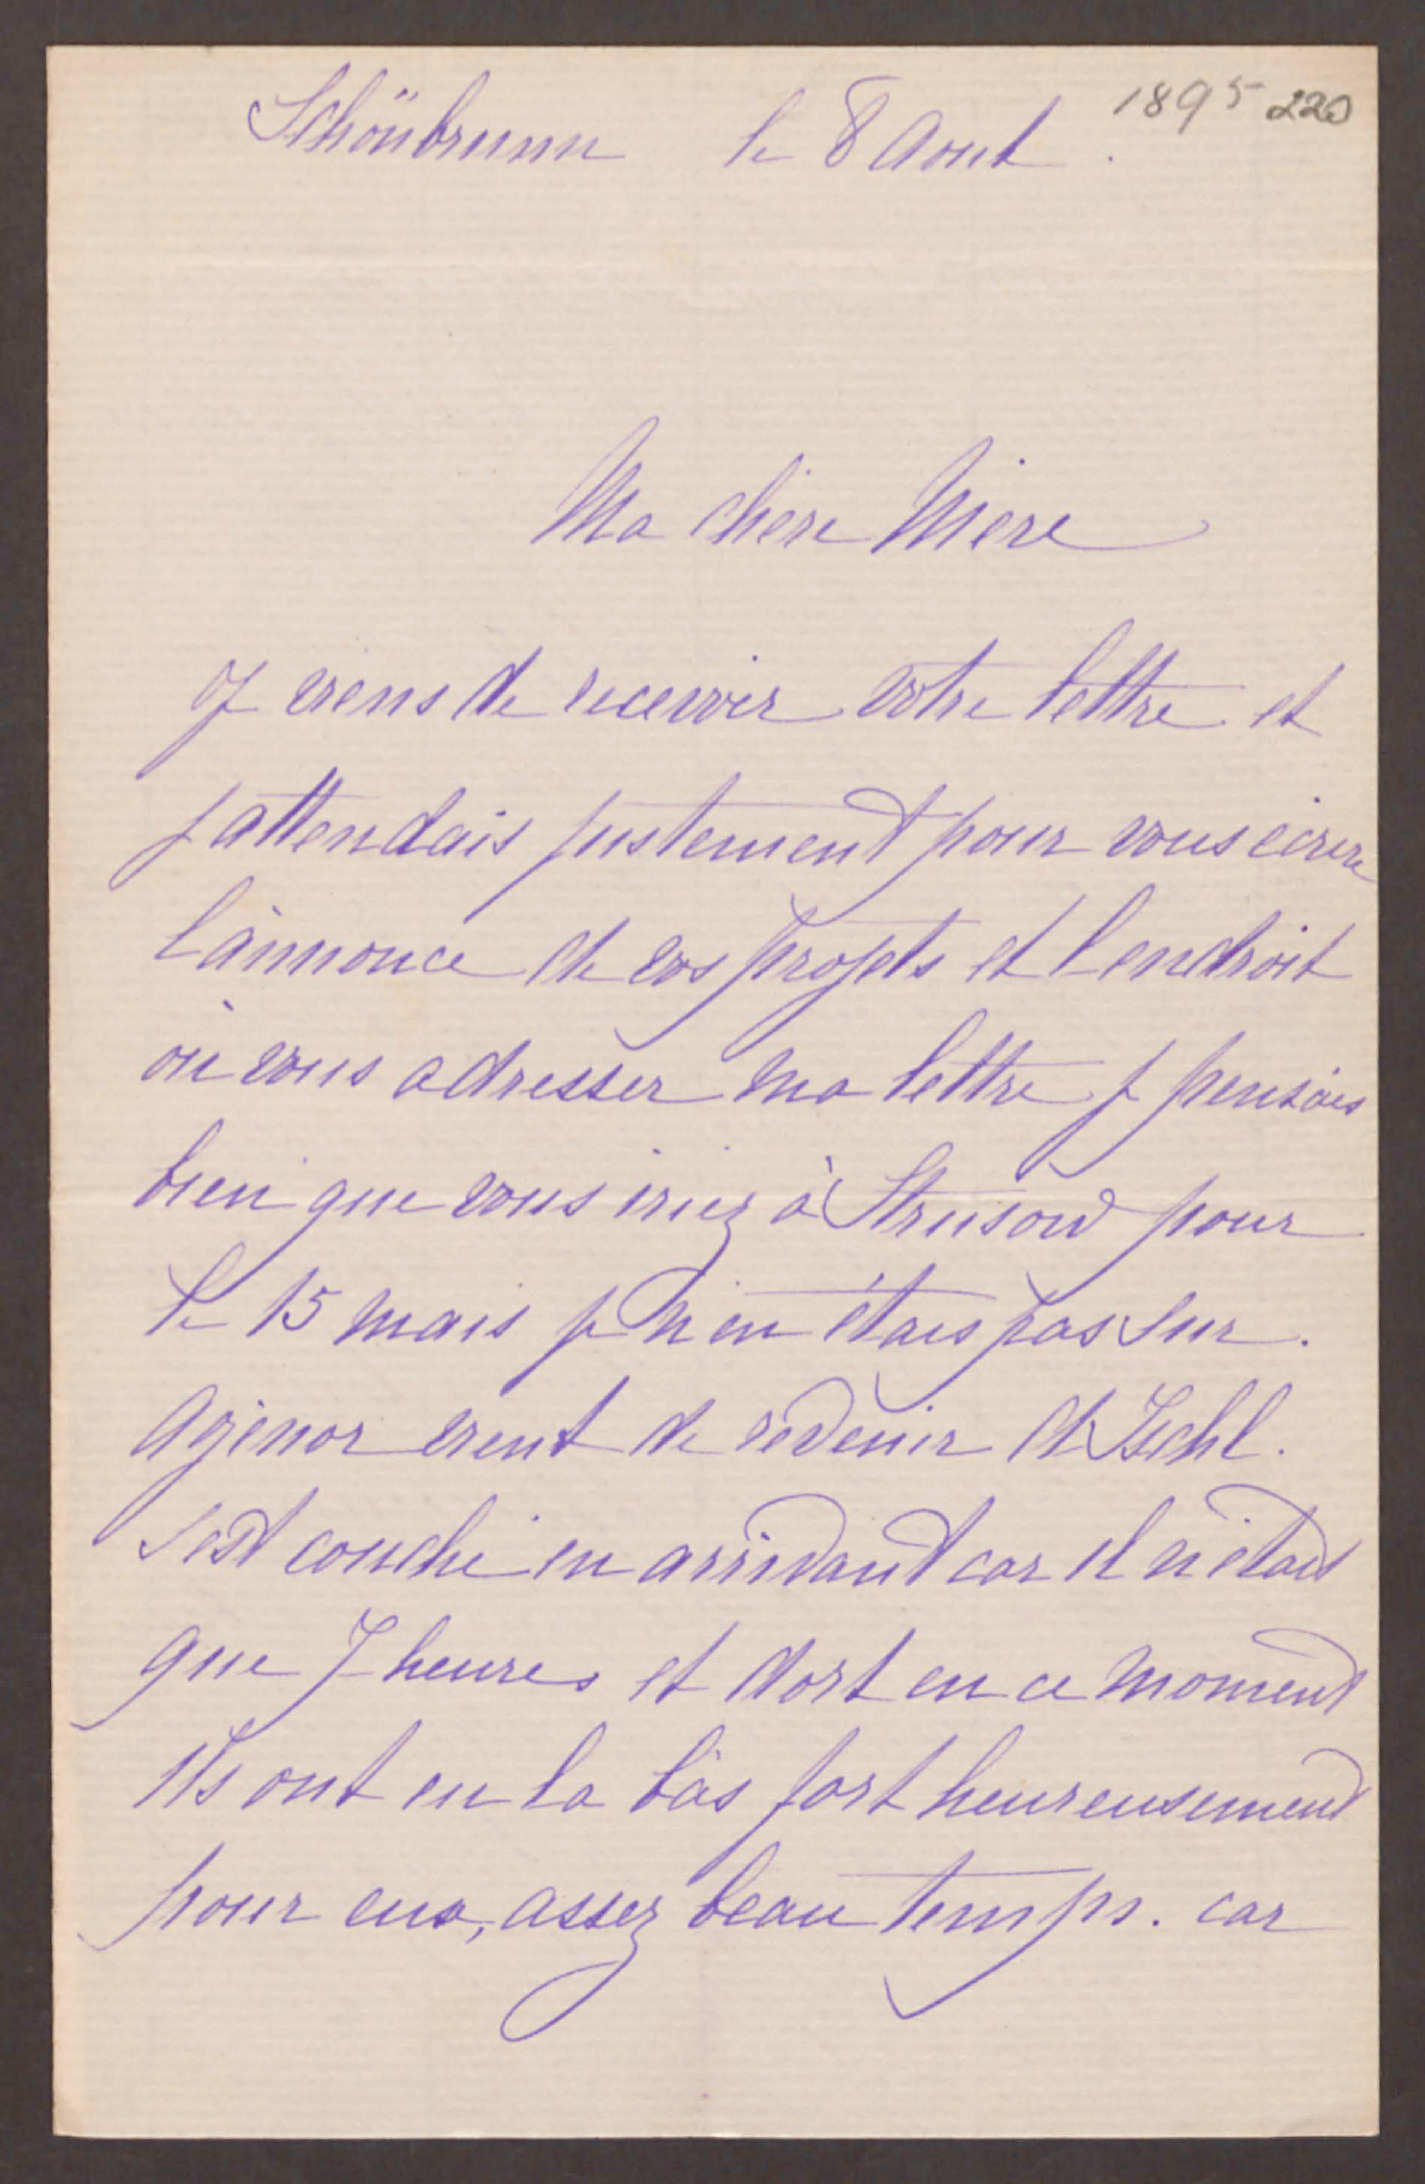 Schönbrunn le 8 Aout. 1895 220
Ma chère Mère
Je viens de recevoir votre lettre et
j attendais justement pour vous écrire
l'annonce de vos projets et l endroit
où vous adresser ma lettre je pensais
bien que vous iriez à Strusow pour
le 15 mais je n en étais pas sur.
Agénor vient de revenir d'Ischl.
s est couché en arrivant car il n'était
que 7 heures et dort en ce moment
Ils ont eu la bàs fort heureusement
pour eux, assez beau temps. car